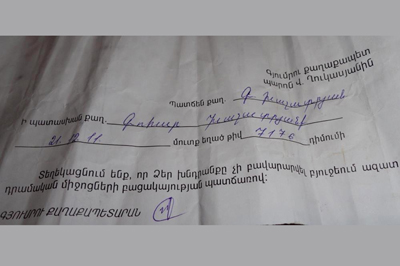 Գյումրու քաղաքապետ
պարոն Վ. Ղուկասյանին
Պատճեն քաղ. Գ Խաչատրյան
Ի պատասխան քաղ. Գոհար Խաչատրյանի
21.12.11. մուտք եղած թիվ 717 դիմումի
Տեղեկացնում ենք, որ Ձեր խնդրանքը չի բավարարվել բյուջեում ազատ
դրամական միջոցների բացակայության պատճառով:
ԳՅՈՒՄՐՈՒ ՔԱՂԱՔԱՊԵՏԱՐԱՆ